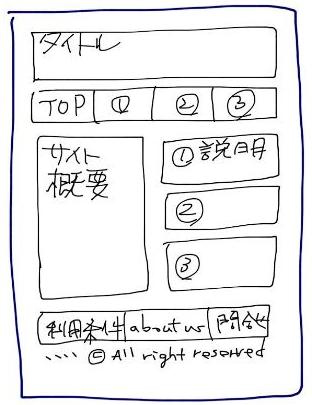 タイトル
TOP ① ② ③
サイト
概要
①説明
②
③
利用条件 about us 問合せ
.... © All right reserved